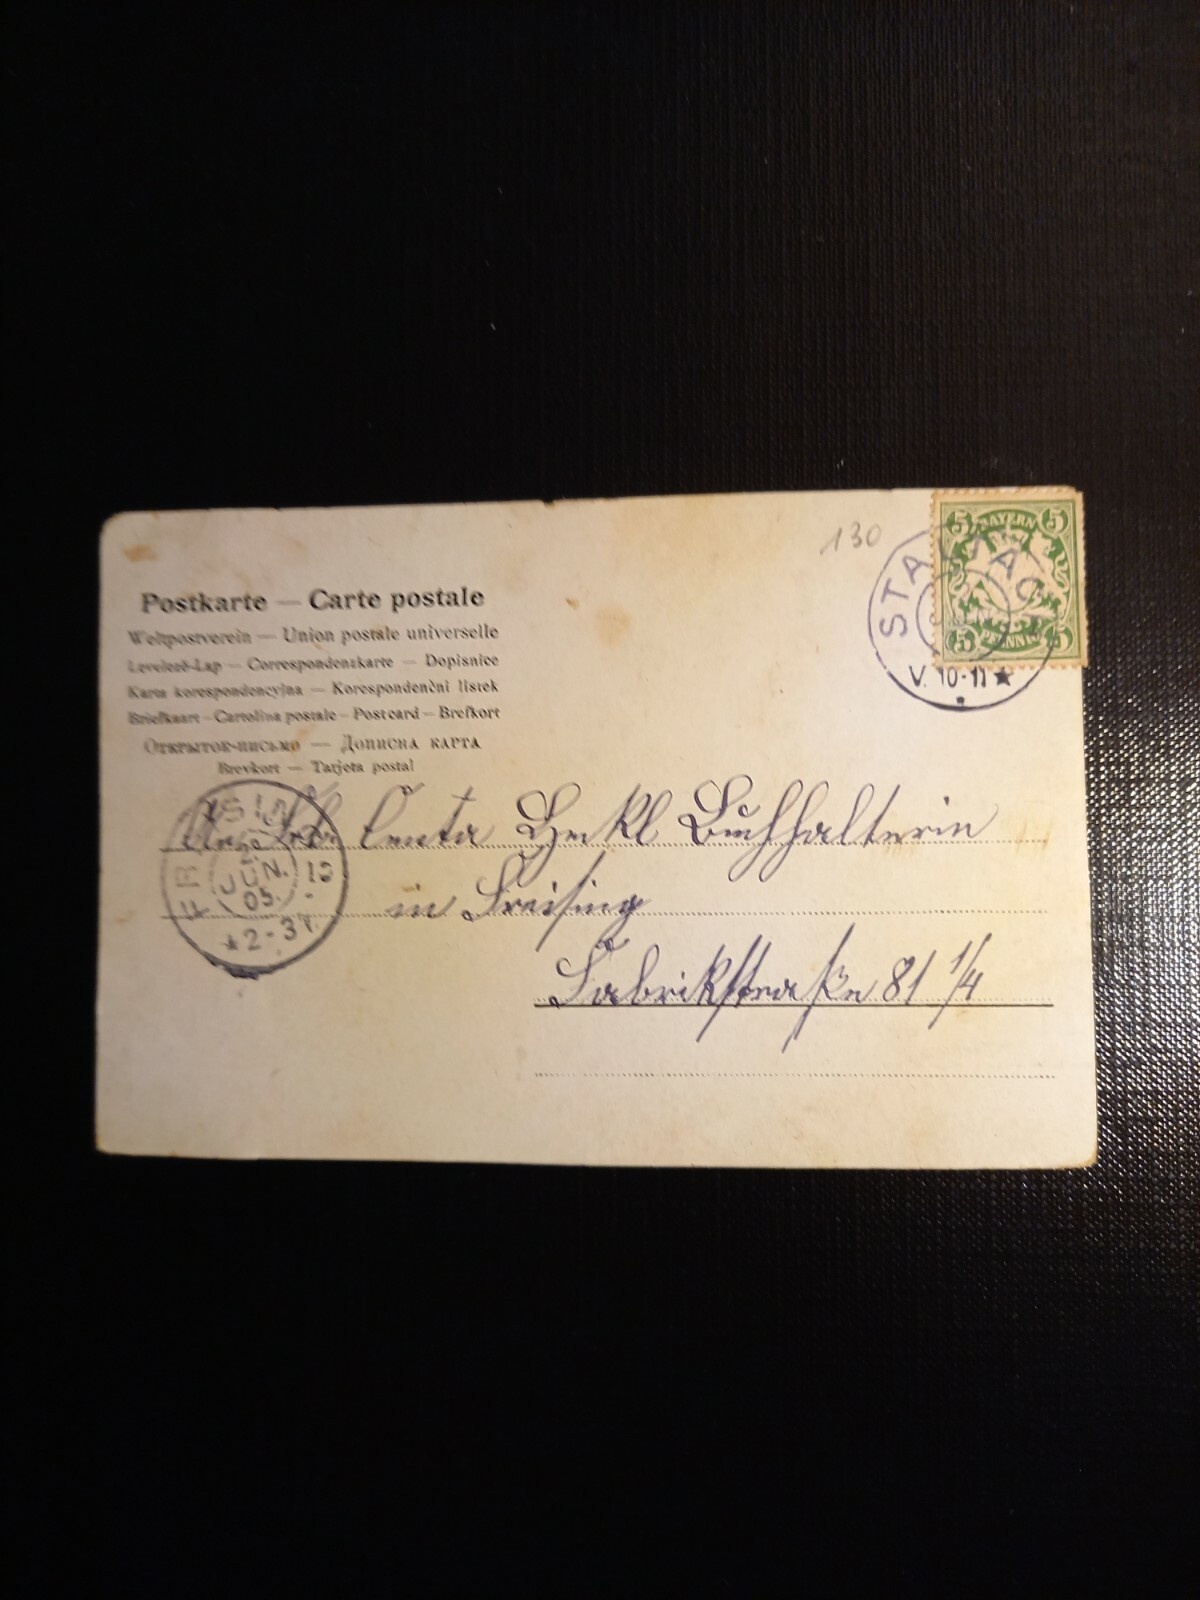 130
BAYERN
5 5
5 5
PFENNIG
STA
V. 10-11
Postkarte — Carte postale
Weltpostverein — Union postale universelle
Levelező-Lap — Correspondenzkarte — Dopisnice
Karta korespondencyjna — Korespondenční listek
Briefkaart — Cartolina postale — Post card — Brefkort
Открытое-письмо — Дописна карта
Brevkort — Tarjeta postal
Centa Buchhalterin
in Freising
Fabrikstraße 81 1/4
JUN.
05.
2-3